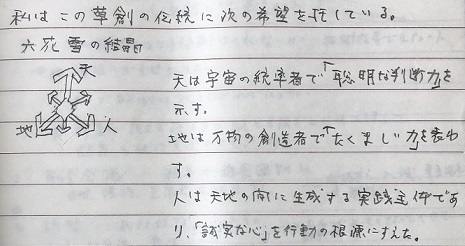 私はこの草創の伝統に次の希望を託している。
六花雪の結晶
天
地
人
天は宇宙の統率者で「聡明な判断力」を
示す。
地は万物の創造者で「たくましい力」を表わ
す。
人は天地の間に生成する実践主体であ
り、「誠実な心」を行動の根源にすえた。